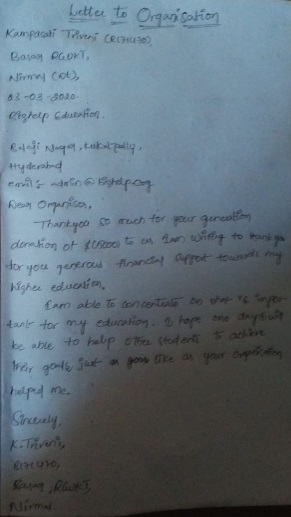 Letter to Organisation
Kampasati Triveni (R171470)
Basar RGUKT,
Nirmal (dt),
03-03-2020.
Rishelp Education.
Balaji Nagar, Kukatpally,
Hyderabad
email: admin@
Dear Organisor,
Thankyou so much for your generation
donation of to us I am writing to thank you
for you generous financial support towards my
higher education.
I am able to concentrate on what is impor-
tant for my education. I hope one day I will
be able to help other students to achieve
their goals just like as your organisation
helped me.
Sincerely,
K. Triveni,
R171470,
Basar, RGUKT,
Nirmal